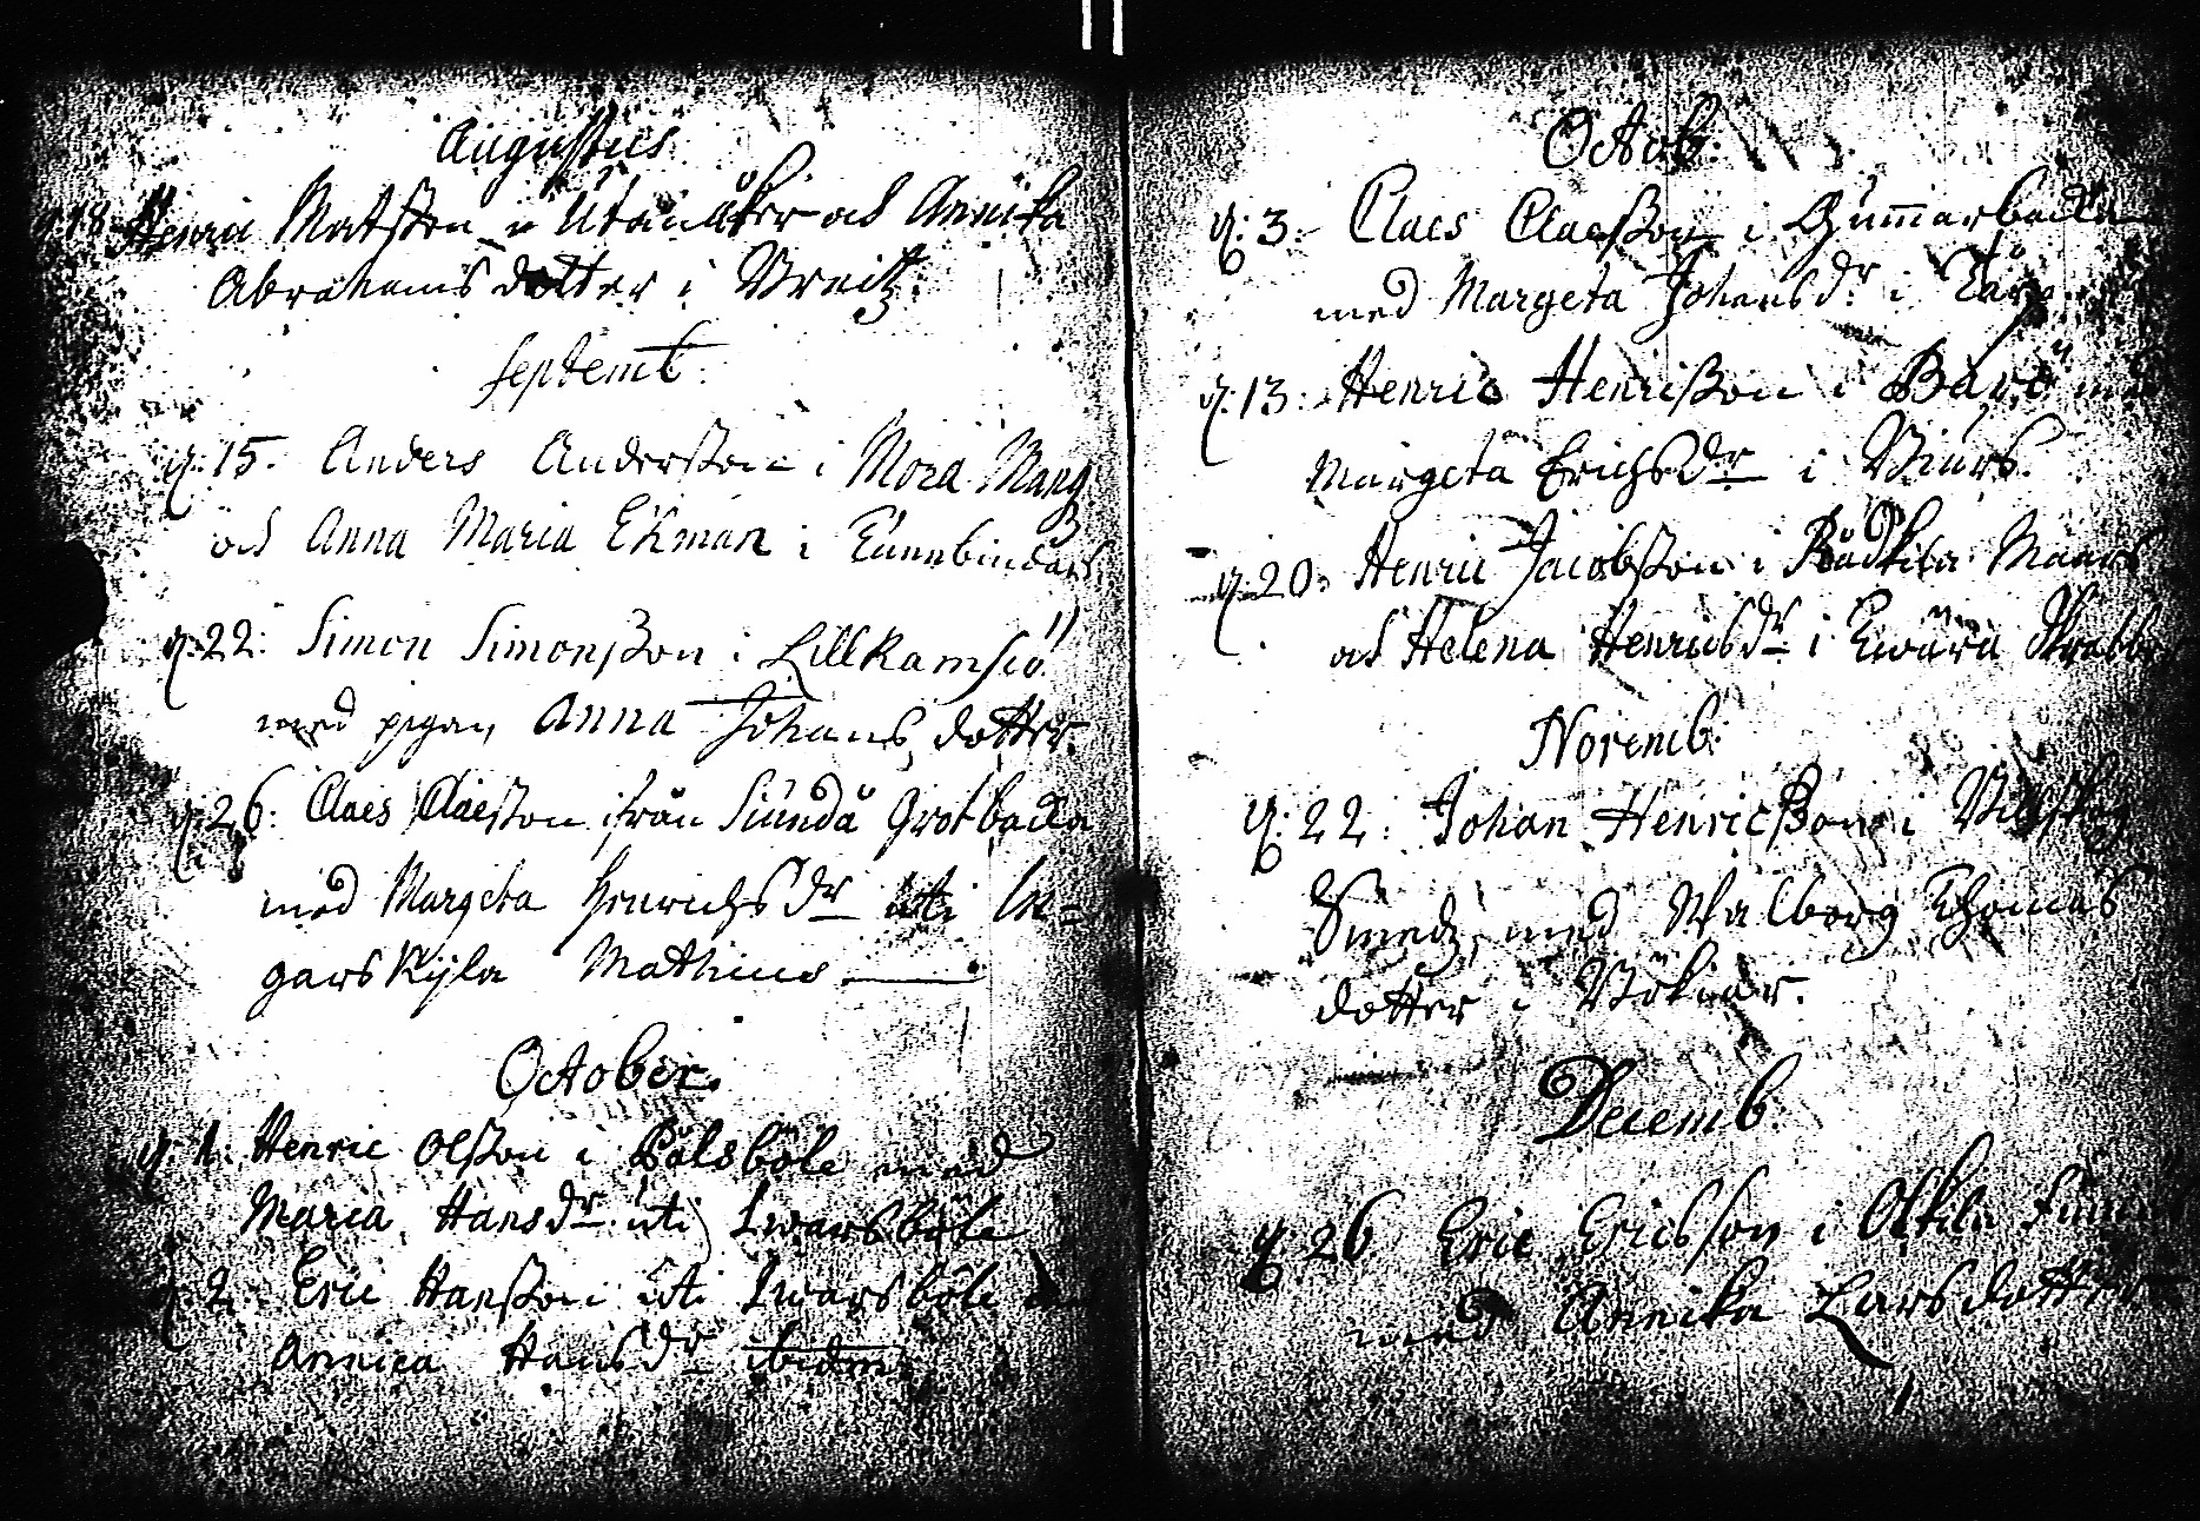 Augustus
18 Henric Matsson i Utanåker och Annika
Abrahamsdotter i Breitz.
Septemb:
d: 15. Anders Andersson i Mora Mang
och Anna Maria Ekman i Tunnbindars
d: 22: Simon Simonsson i Lillkamsiö
med pigan Anna Johans dotter
d: 26: Claes Claesson ifrån Siundå Grotbacka
med Margeta Henrichsdr uti In=
garskyla Mathius
October.
d: 1: Henric Olsson i Pålsböle med
Maria Hansdr uti Iwarsböle
d: 2. Eric Hansson uti Iwarsböle
Annica Hansdr ibidm
Octob:
d: 3: Claes Claesson i Gum̅arbacka
med Margeta Johansdr i
d: 13: Henric Henrisson i Barö
Margeta Erichsdr i
d: 20: Henric Jacobsson i Rådkila Måns
och Helena Henricsdr i
Novemb:
d: 22: Johan Henricsson i
Smedz med Walborg Thomas
dotter i Böknäs.
Decemb:
d: 26. Eric Ericsson i Olkila
med Annika Larsdotter